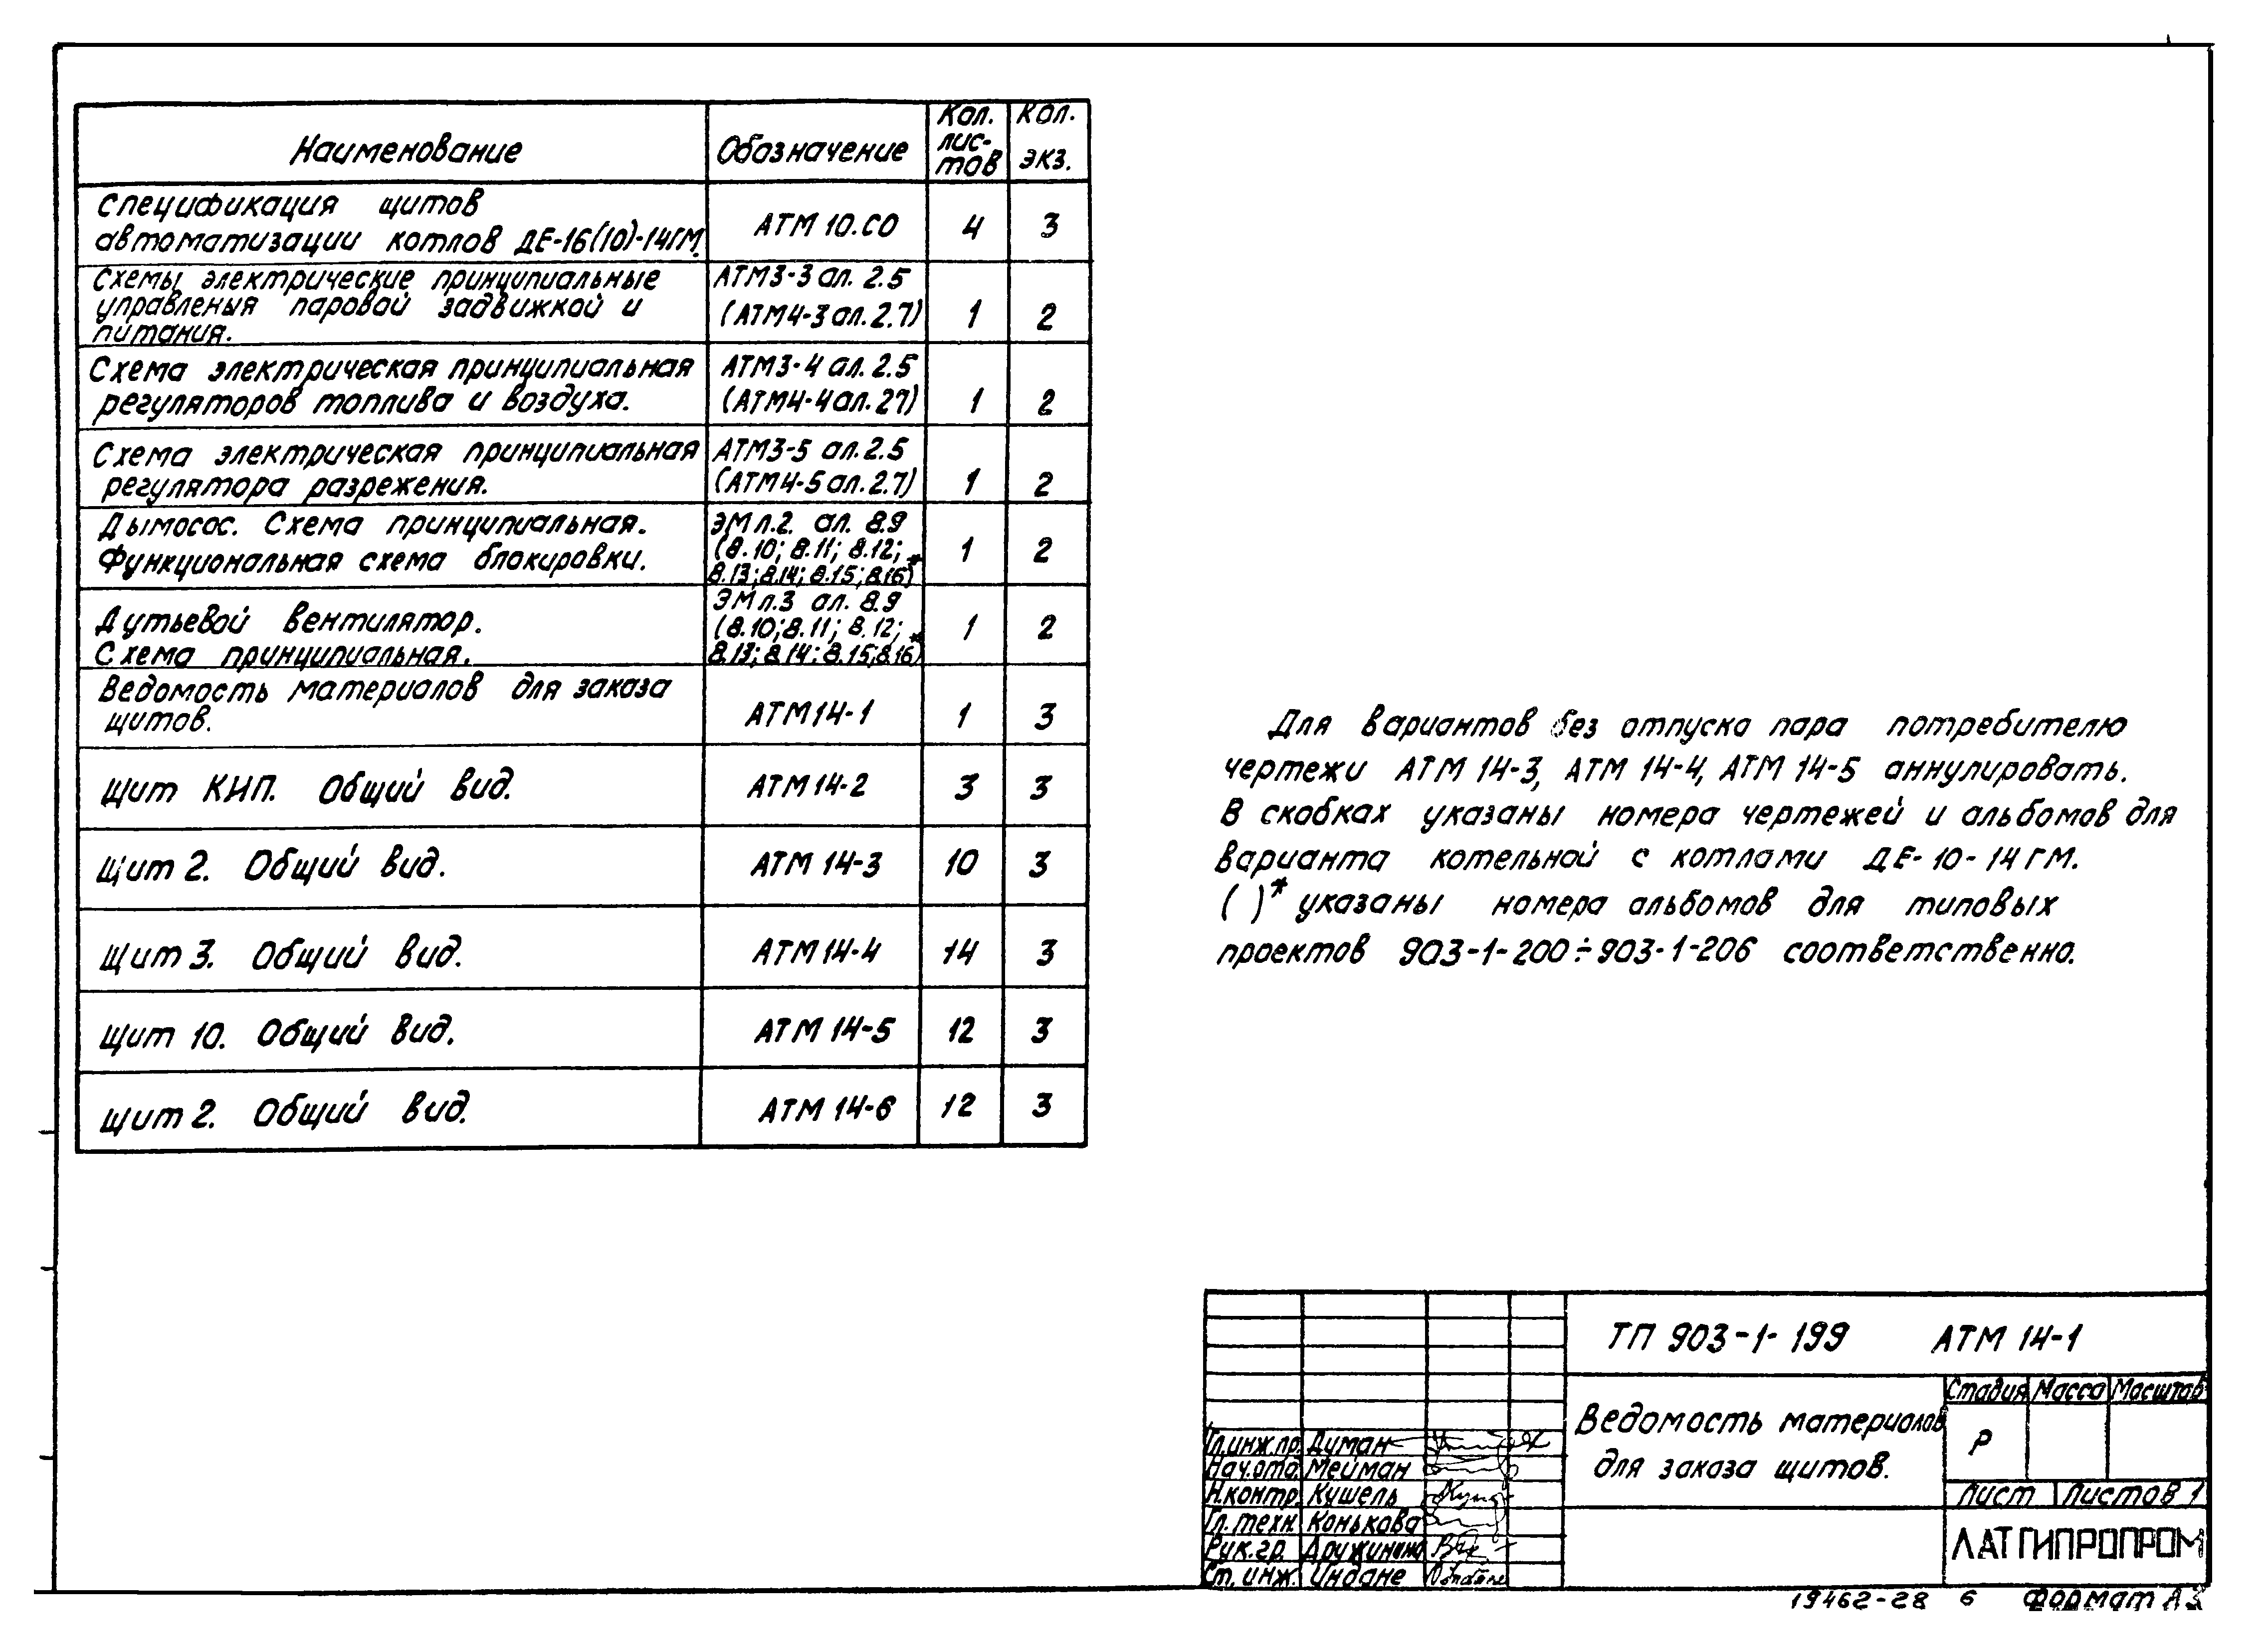 Наименование
Обозначение
Кол. лис- тов
Кол. экз.
Спецификация щитов
автоматизации котлов ДЕ-16(10)-14ГМ.
АТМ 10.СО
4
3
Схемы электрические принципиальные
управления паровой задвижкой и
питания.
АТМ3-3 ал. 2.5
(АТМ4-3 ал. 2.7)
1
2
Схема электрическая принципиальная
регуляторов топлива и воздуха.
АТМ3-4 ал. 2.5
(АТМ4-4 ал. 27)
1
2
Схема электрическая принципиальная
регулятора разрежения.
АТМ3-5 ал. 2.5
(АТМ4-5 ал. 2.7)
1
2
Дымосос. Схема принципиальная.
Функциональная схема блокировки.
ЭМ л.2. ал. 8.9
(8.10; 8.11; 8.12;
8.13; 8.14; 8.15; 8.16)*
1
2
Дутьевой вентилятор.
Схема принципиальная.
ЭМ л.3 ал. 8.9
(8.10; 8.11; 8.12;
8.13; 8.14; 8.15; 8.16)*
1
2
Ведомость материалов для заказа
щитов.
АТМ 14-1
1
3
Щит КИП. Общий вид.
АТМ 14-2
3
3
Щит 2. Общий вид.
АТМ 14-3
10
3
Щит 3. Общий вид.
АТМ 14-4
14
3
Щит 10. Общий вид.
АТМ 14-5
12
3
Щит 2. Общий вид.
АТМ 14-6
12
3
Для вариантов без отпуска пара потребителю
чертежи АТМ 14-3, АТМ 14-4, АТМ 14-5 аннулировать.
В скобках указаны номера чертежей и альбомов для
варианта котельной с котлами ДЕ-10-14ГМ.
( )* указаны номера альбомов для типовых
проектов 903-1-200÷903-1-206 соответственно.
ТП 903-1-199 АТМ 14-1
Ведомость материалов
для заказа щитов.
Стадия Масса Масштаб
Р
Лист Листов 1
ЛАТГИПРОПРОМ
Гл.инж.пр. Думан
Нач.отд. Мейман
Н.контр. Кушель
Гл.техн. Конькова
Рук.гр. Дружинина
Ст. инж. Индане
19462-28 6 Формат А3